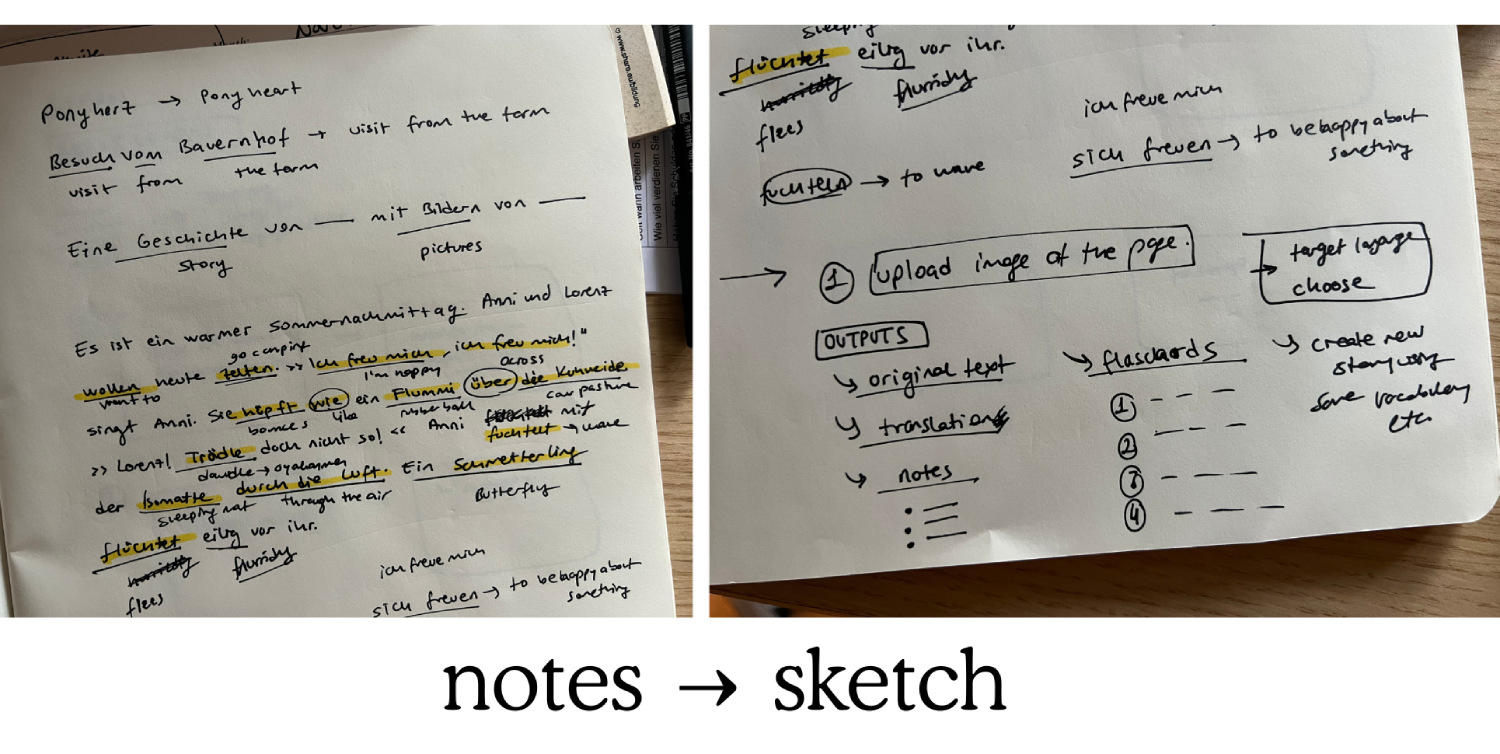 Ponyherz → Pony heart
Besuch vom Bauernhof → visit from the farm
visit from the farm
Eine Geschichte von — mit Bildern von —
story pictures
Es ist ein warmer Sommernachmittag. Anni und Lorenz
go camping
wollen heute zelten. >> Ich freu mich, ich freu mich!"
want to I'm happy across
singt Anni. Sie hüpft wie ein Flummi über die Kuhweide.
bounces like rubber ball cow pasture
>> Lorenz! Trödle doch nicht so! << Anni fuchtelt mit
dawdle → wave
der Isomatte durch die Luft. Ein Schmetterling
sleeping mat through the air Butterfly
flüchtet eilig vor ihr.
flees
ich freue mich
sich freuen → to be happy about
something
sleeping
flüchtet eilig vor ihr.
flees
ich freue mich
fuchteln → to wave
sich freuen → to be happy about
something
→ ① upload image of the page.
→ target language
choose
OUTPUTS
↳ original text
↳ translation
↳ notes
↳ flascards
① — — —
② — — —
③ — — —
④ — — —
↳ create new
story using
same vocabulary
etc.
notes → sketch